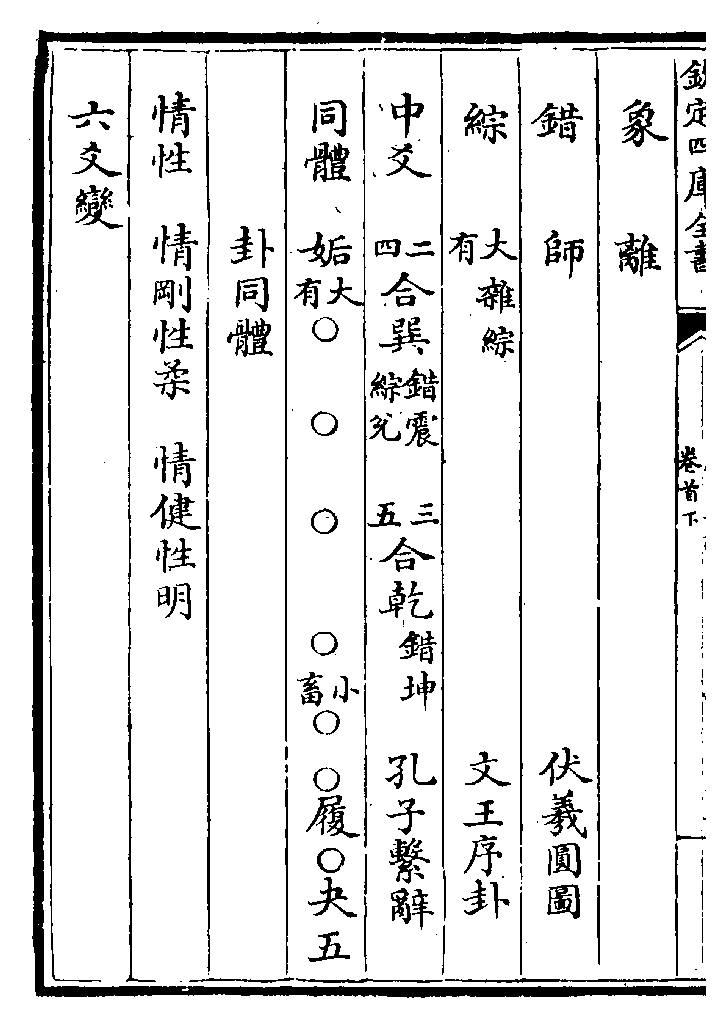 欽定四庫全書
卷首下
象　離
錯　師　伏羲圓圖
綜　大有　雜綜　文王序卦
中爻　二四合巽　錯震綜兌　三五合乾　錯坤　孔子繫辭
同體　姤　大有〇　〇　〇　〇　小畜〇　〇履〇夬五
卦同體
情性　情剛性柔　情健性明
六爻變